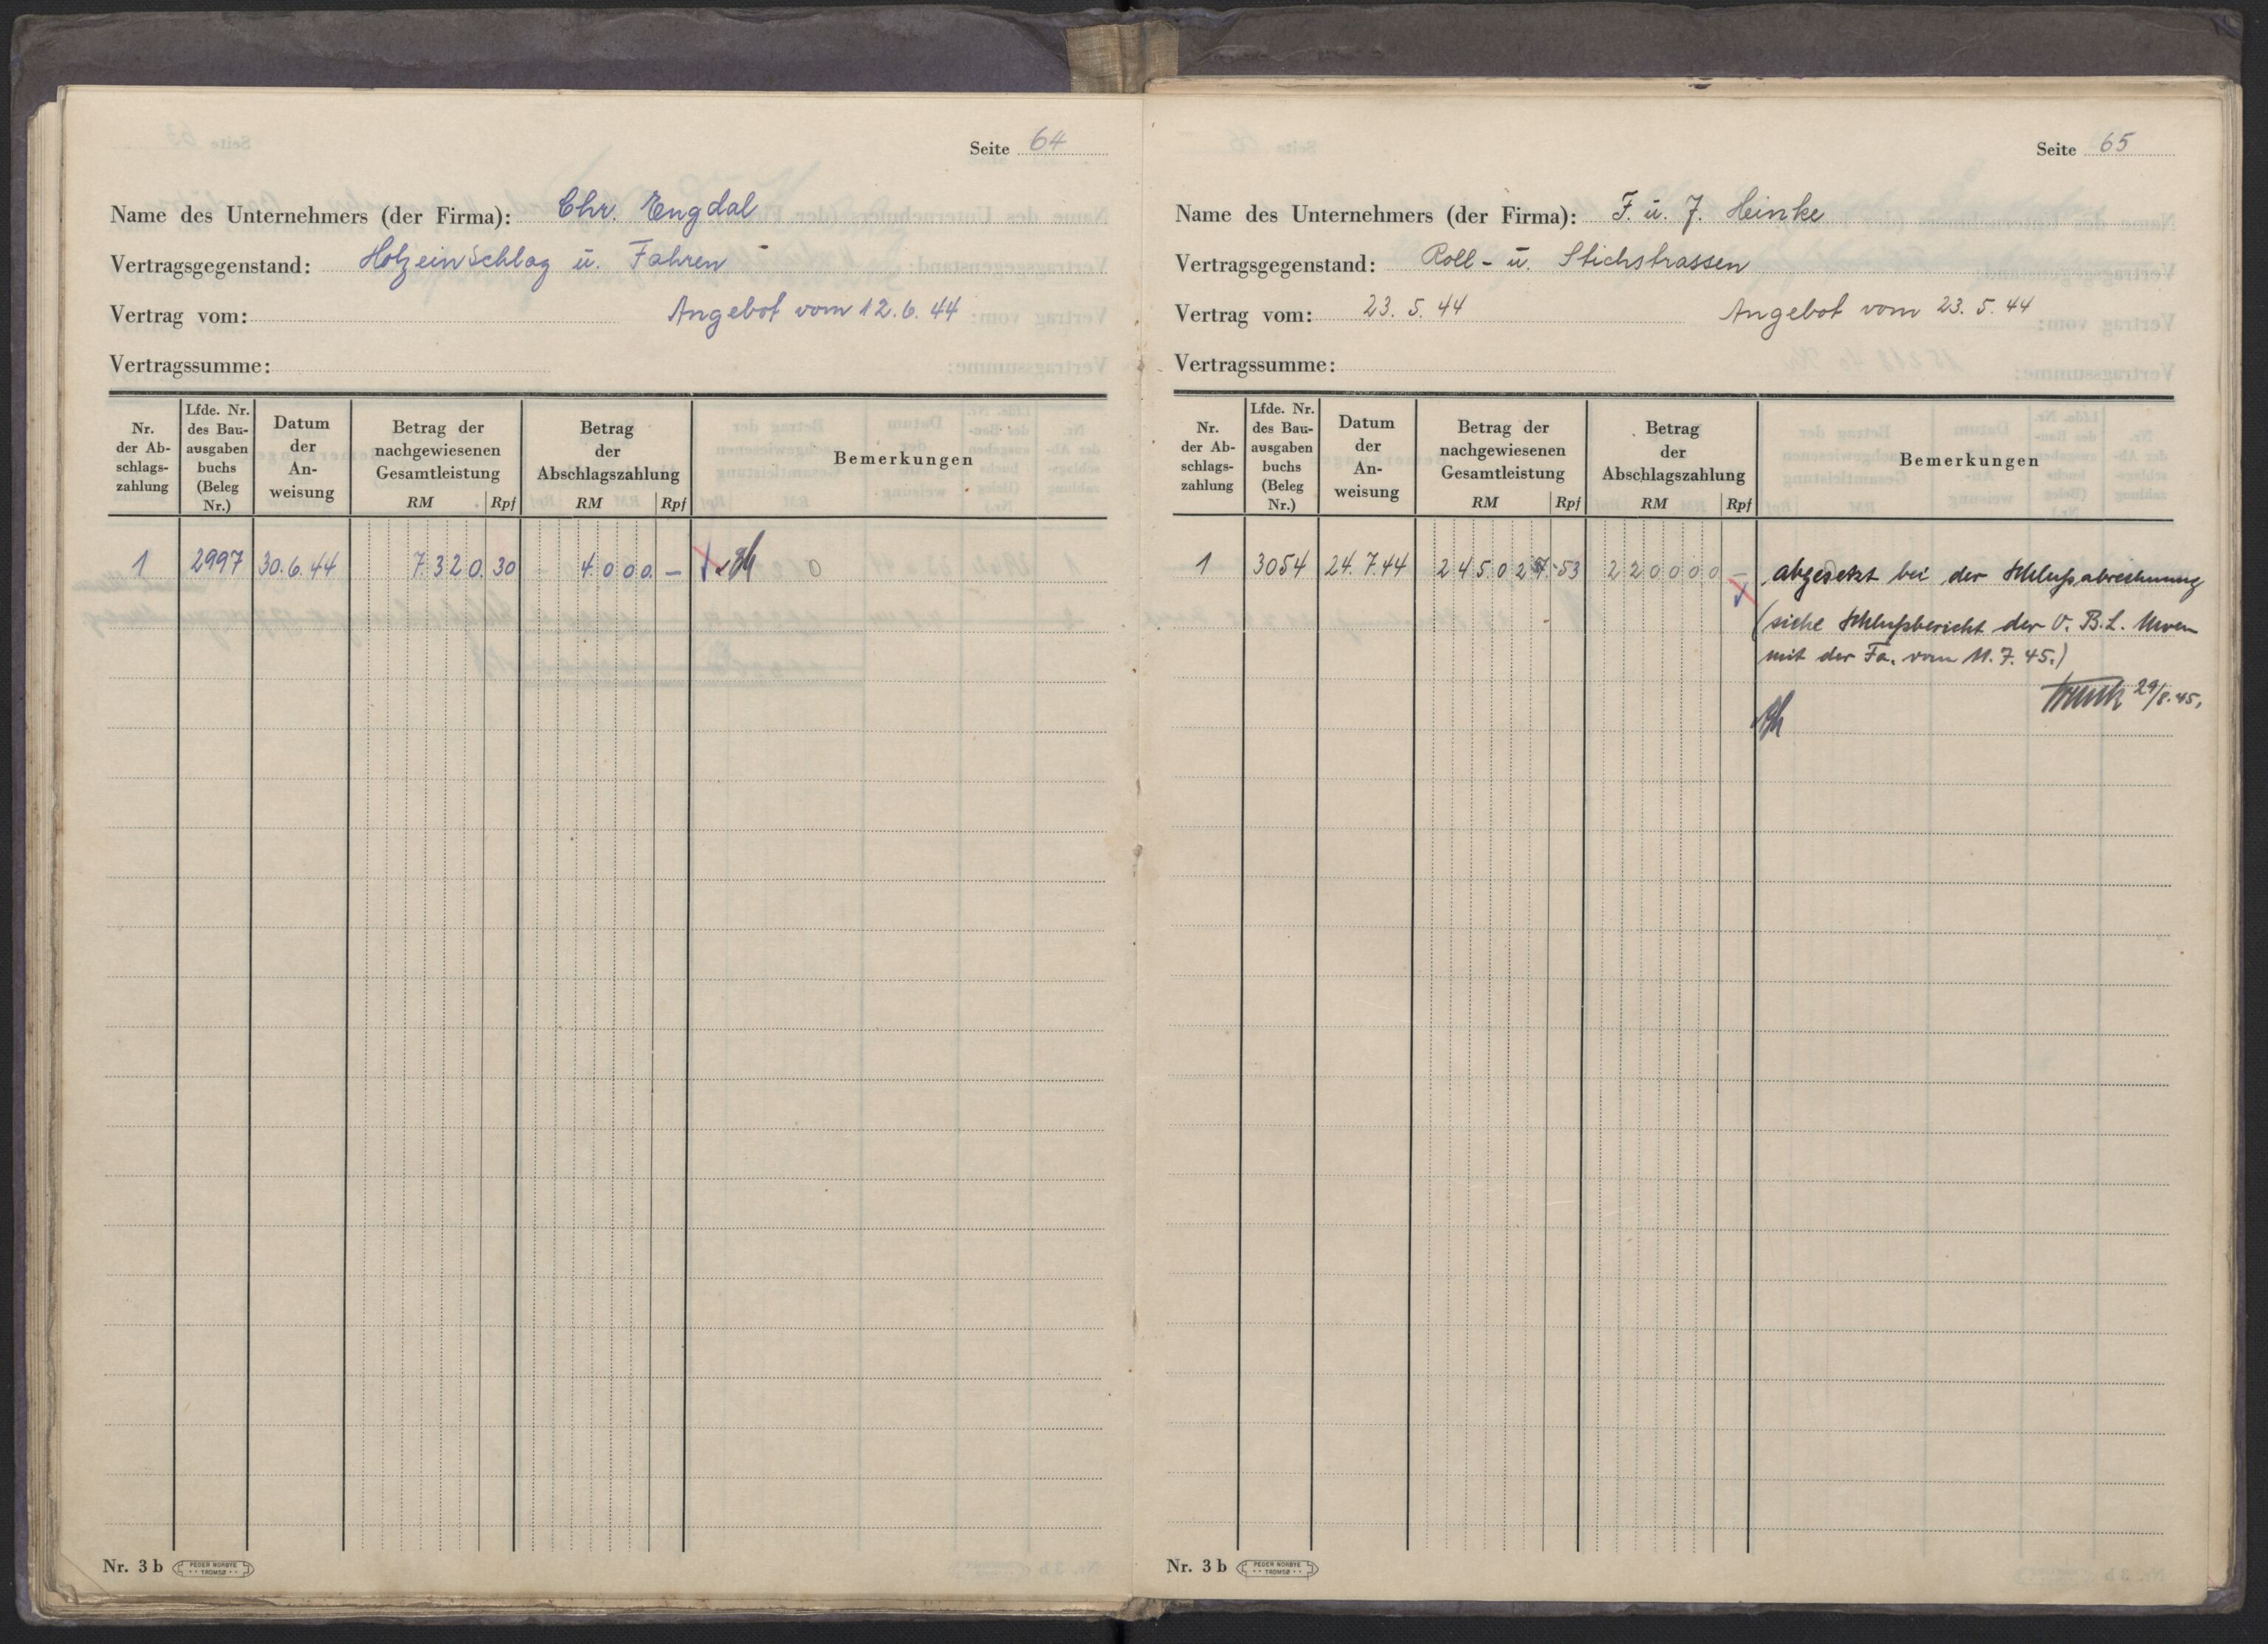 Seite 64
Name des Unternehmers (der Firma): Chr. Engdal
Vertragsgegenstand: Holzeinschlag u. Fahren
Vertrag vom: Angebot vom 12.6.44
Vertragssumme:
Nr. der Ab- schlags- zahlung
Lfde. Nr. des Bau- ausgaben buchs (Beleg Nr.)
Datum der An- weisung
Betrag der nachgewiesenen Gesamtleistung RM Rpf
Betrag der Abschlagszahlung RM Rpf
Bemerkungen
1 2997 30.6.44 7320.30 4000.— 0
Nr. 3 b PEDER NORBYE TROMSØ
Seite 65
Name des Unternehmers (der Firma): F. u. J. Heinke
Vertragsgegenstand: Roll- u. Stichstrassen
Vertrag vom: 23. 5. 44 Angebot vom 23. 5. 44
Vertragssumme:
Nr. der Ab- schlags- zahlung
Lfde. Nr. des Bau- ausgaben buchs (Beleg Nr.)
Datum der An- weisung
Betrag der nachgewiesenen Gesamtleistung RM Rpf
Betrag der Abschlagszahlung RM Rpf
Bemerkungen
1 3054 24.7.44 245027.53 220000 — abgesetzt bei der Schlußabrechnung
(siehe Schlußbericht der O. B. L.
mit der Fa. vom 11. 7. 45.)
29/8.45.
Nr. 3 b PEDER NORBYE TROMSØ